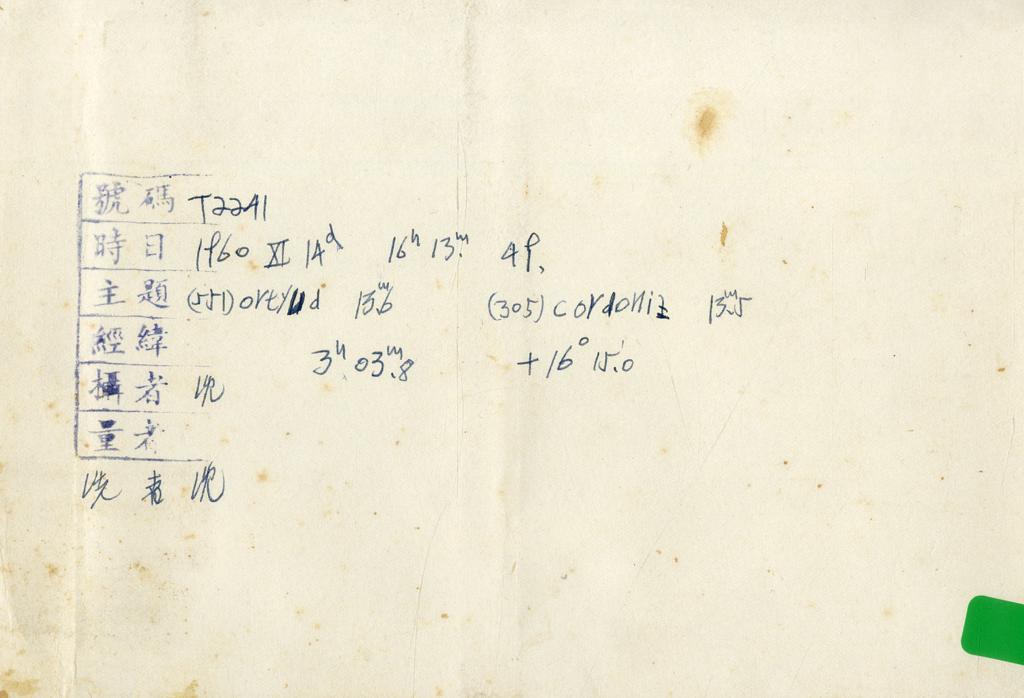 號碼 T2241
時日 1960 XI 14d 16h 13m. 49.
主題 (551) ortrud 13m.6 (305) cordoniz 13m.5
經緯 3h. 03m.8 +16° 15'.0
攝者 沈
量者
洗者 沈